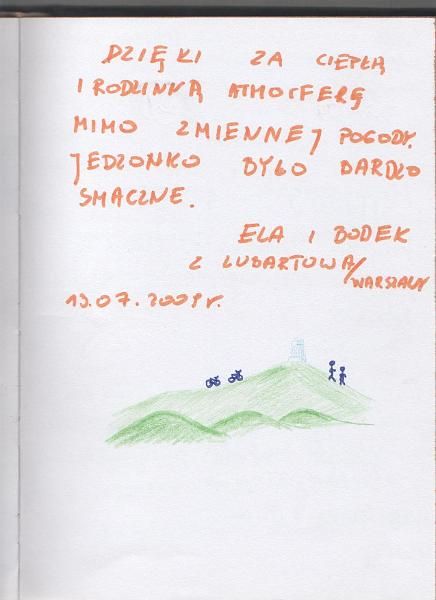 DZIĘKI ZA CIEPŁĄ
I RODZINNĄ ATMOSFERĘ
MIMO ZMIENNEJ POGODY.
JEDZONKO BYŁO BARDZO
SMACZNE.
ELA I BODEK
Z LUBARTOWA/
WARSZAWY
19.07.2009 r.